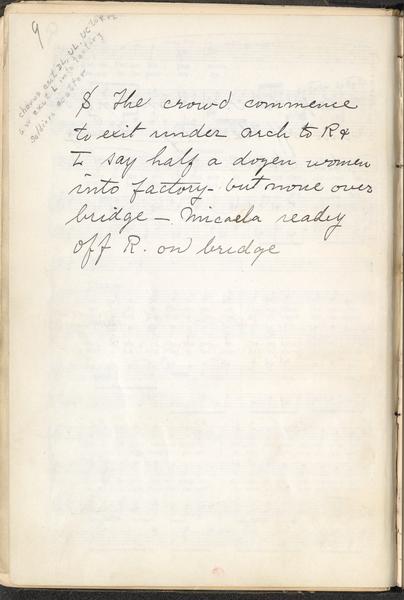 9
chorus exit DL, UL, UC to R
6 W exit L into factory
soldiers
$ The crowd commence
to exit under arch to R &
L say half a dozen women
into factory - but none over
bridge - Micaela ready
off R. on bridge